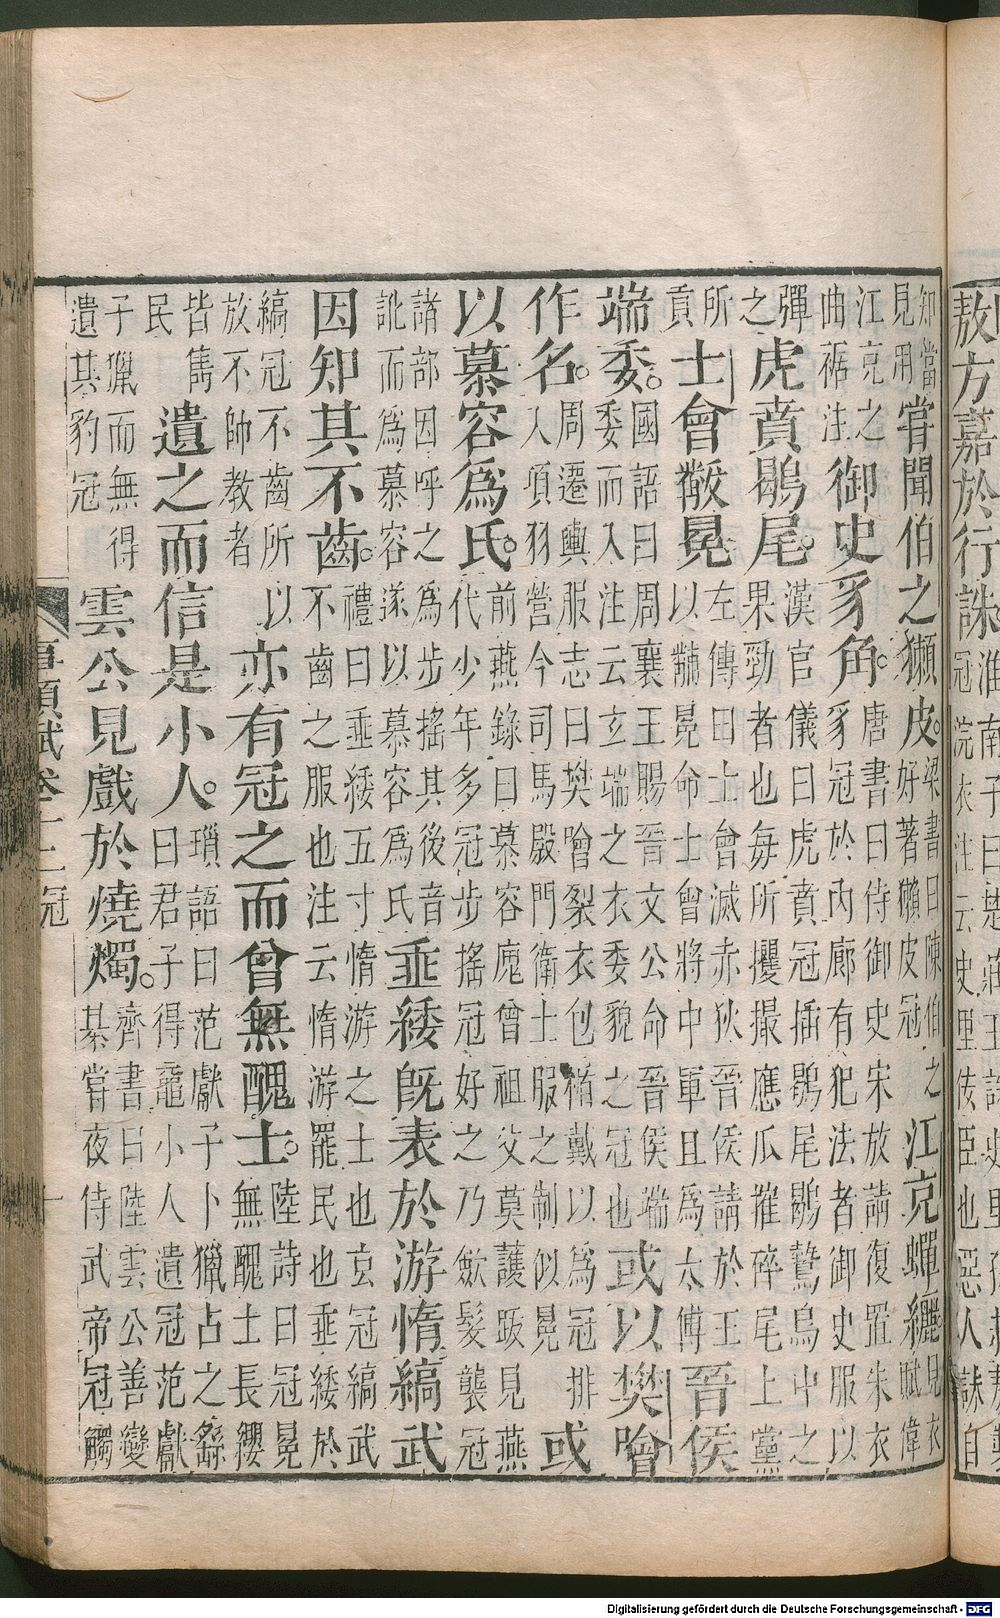 敖方嘉於行誅
知當見用嘗聞伯之獺皮。梁書曰陳伯之好著獺皮冠江充蟬纚。見衣賦偉
江充之曲裾注御史豸角。唐書曰侍御史宋放請復置朱衣豸冠於內廊有犯法者御史服以
彈之虎賁鶡尾。漢官儀曰虎賁冠插鶡尾鶡鷙鳥中之果勁者也每所攫撮應瓜摧碎尾上黨
所貢士會黻冕左傳曰士會滅赤狄晉侯請於王以黼冕命士會將中軍且爲太傅晉侯
端委。國語曰周襄王賜晉文公命晉侯端委而入注云玄端之衣委貌之冠也或以樊噲
作名。周遷輿服志曰樊噲裂衣包楯戴以爲冠排入項羽營今司馬殿門衛士服之制似冕或
以慕容爲氏。前燕錄曰慕容廆曾祖父莫護跋見燕代少年多冠步搖冠好之乃歛髮襲冠
諸部因呼之爲步搖其後音訛而爲慕容遂以慕容爲氏垂緌旣表於游惰縞武
因知其不齒。禮曰垂緌五寸惰游之士也玄冠縞武不齒之服也注云惰游罷民也垂緌於
縞冠不齒所以放不帥教者亦有冠之而曾無醜士。陸詩曰冠冕無醜士長纓
皆雋民遺之而信是小人。瑣語曰范獻子卜獵占之繇曰君子得黿小人遺冠范獻
子獵而無得遺其豹冠雲公見戲於燒燭。齊書曰陸雲公善變棊嘗夜侍武帝冠觸
事類賦卷十二 冠 十
Digitalisierung gefördert durch die Deutsche Forschungsgemeinschaft - DFG